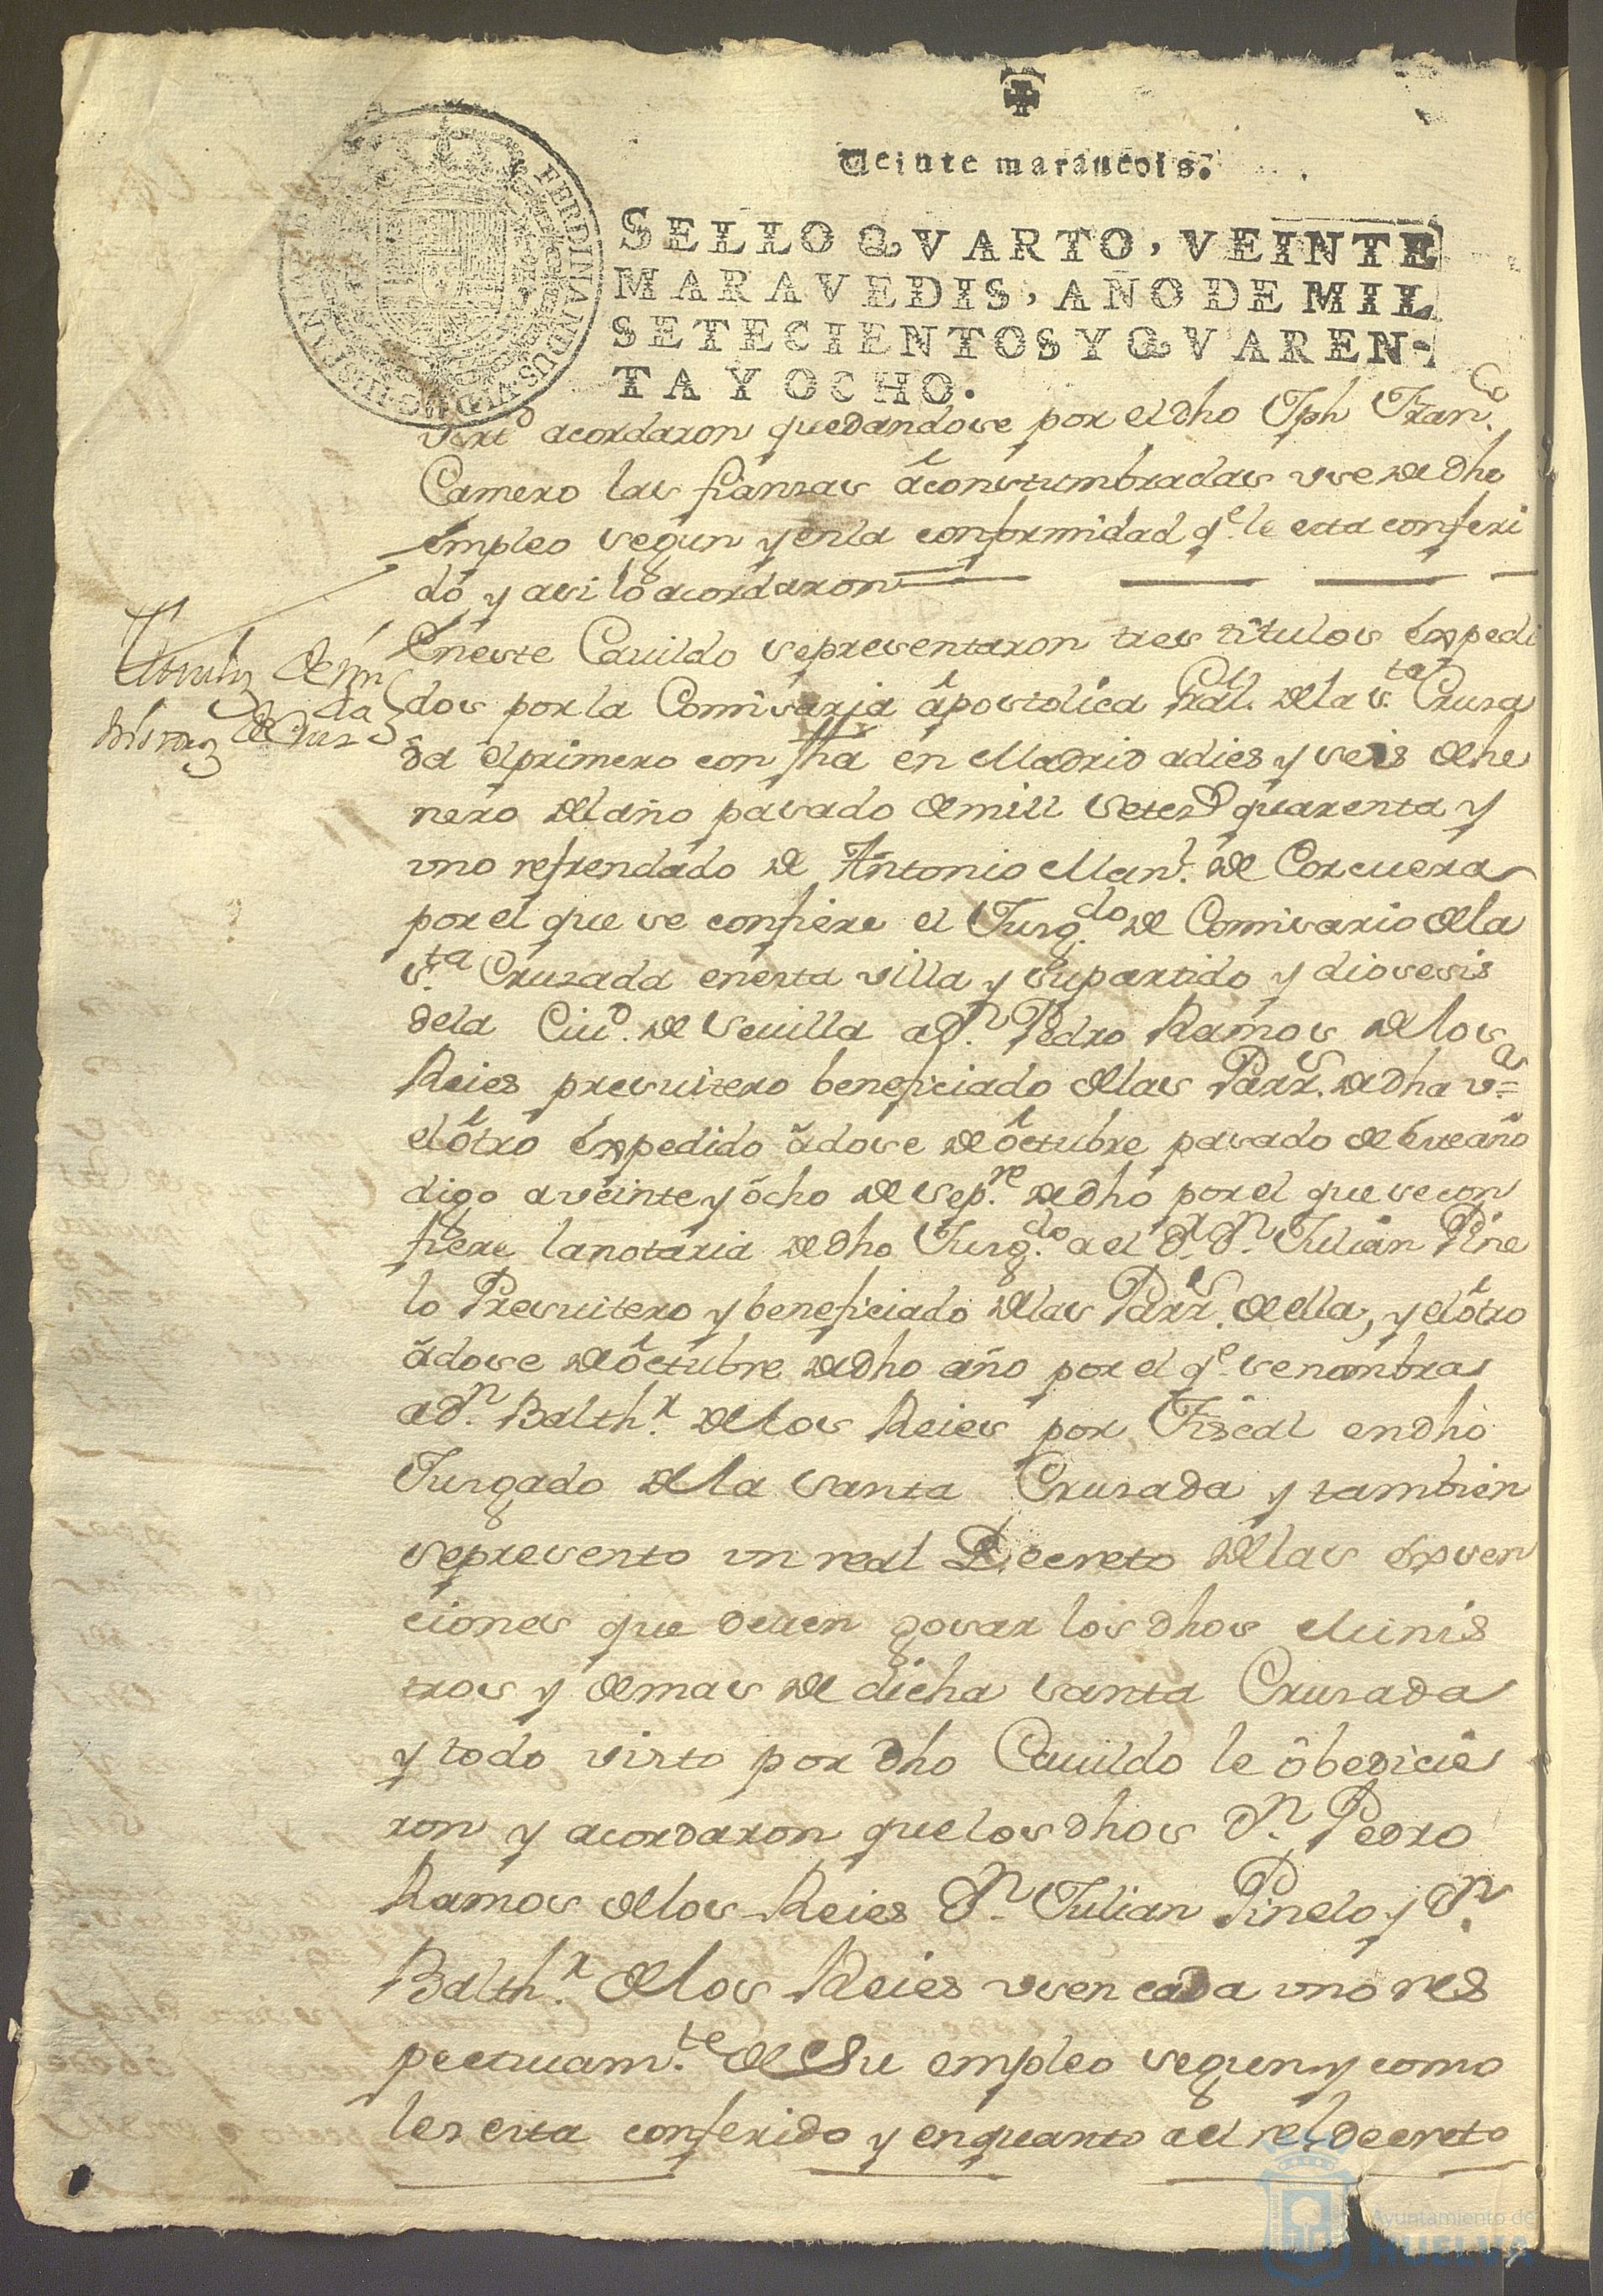 Veinte marauedis.
SELLO QVARTO, VEINTE
MARAVEDIS, AÑO DE MIL
SETECIENTOS Y QVAREN-
TA Y OCHO.
FERDINANDUS VI D G HISPANIAR
acordaron quedandose por el dho Jph Franco
Camero las fianzas acontumbradas vse de dho
empleo segun y enla conformidad qe le esta conferi
do y asi lo acordaron
Titulos de mi
nistros de Cruzda
Eneste Cauildo sepresentaron tres titulos expedi
dos por la Comisaria apostolica Gral. dela sta Crusa
da elprimero con fha en Madrid adies y seis dehe
nero del año pasado demill setesd quarenta y
vno refrendado de Antonio Manl. de Corcuera
por el que se confiere el Jusgdo de Comisario dela
sta Cruzada enesta villa y supartido y diosesis
dela Ciud. de Seuilla a Dn. Pedro Ramos delos
Reies presuitero beneficiado delas Parrs. de dha va=
el otro expedido adose de octubre pasado de este año
digo aveinte y ocho de Sepre. de dho por el que se con
fiere lanotaria de dho Jusgdo. a el Dr. Dn. Julian Pine
lo Presuitero y beneficiado delas Parrs. de ella, y el otro
adose de octubre de dho año por el qe se nombra
a Dn. Balthr. delos Reies por Fiscal endho
Jusgado de la santa Crusada y tambien
sepresento vn real Decreto delas exsen
ciones que deuen gosar los dhos Minis
tros y demas de dicha santa Crusada
y todo visto por dho Cauildo le obedicie
ron y acordaron quelos dhos Dn. Pedro
Ramos delos Reies Dn. Julian Pinelo y Dn.
Balthr. delos Reies vsen cada vno res
pectiuamte. de Su empleo segun y como
les esta conferido y enquanto a el rel decreto
Ayuntamiento de
HUELVA